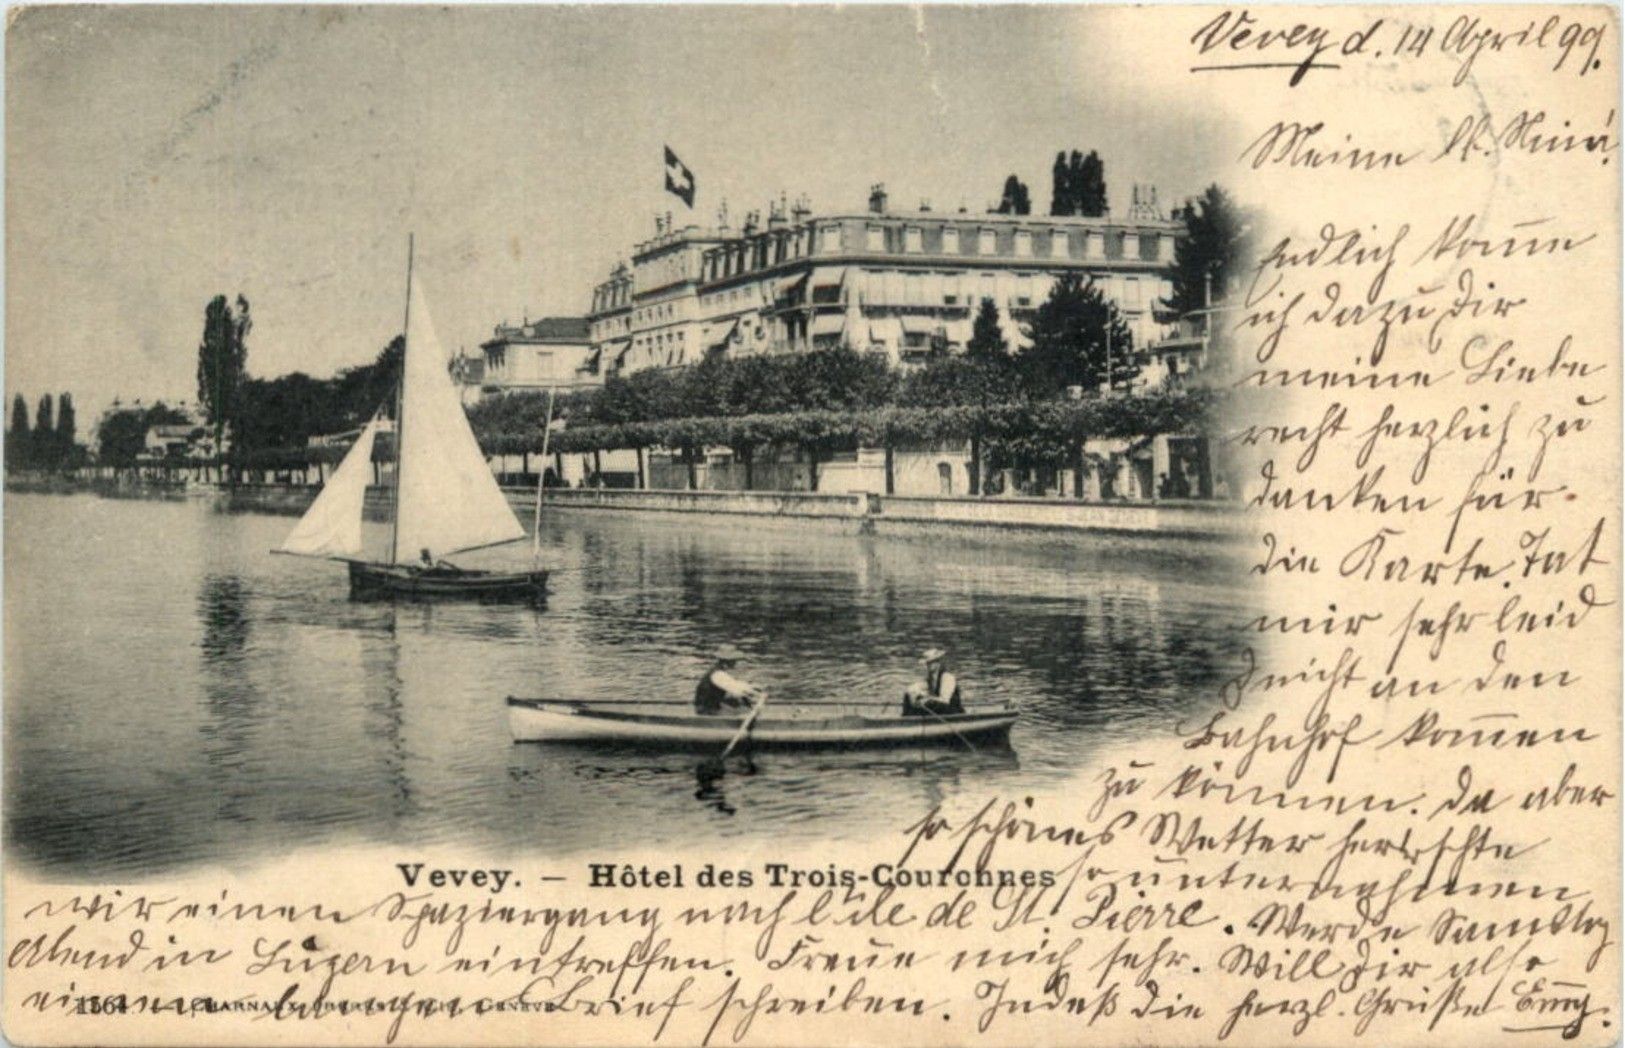 Vevey d. 14 April 99.
Meine lb. Nina!
Endlich komme
ich dazu Dir
meine Liebe
recht herzlich zu
danken für
die Karte. Tat
mir sehr leid
nicht an den
Bahnhof kom̅en
zu können. Da aber
so schönes Wetter herrschte
Vevey. – Hôtel des Trois-Couronnes
so unternahmen
wir einen Spaziergang nach l'île de St. Pierre. Werde Samstag
Abend in Luzern eintreffen. Freue mich sehr. Will Dir also
einen langen Brief schreiben. Indeß die herzl. Grüße
1564 CHARNAUX FRÈRES & Cie, GENÈVE